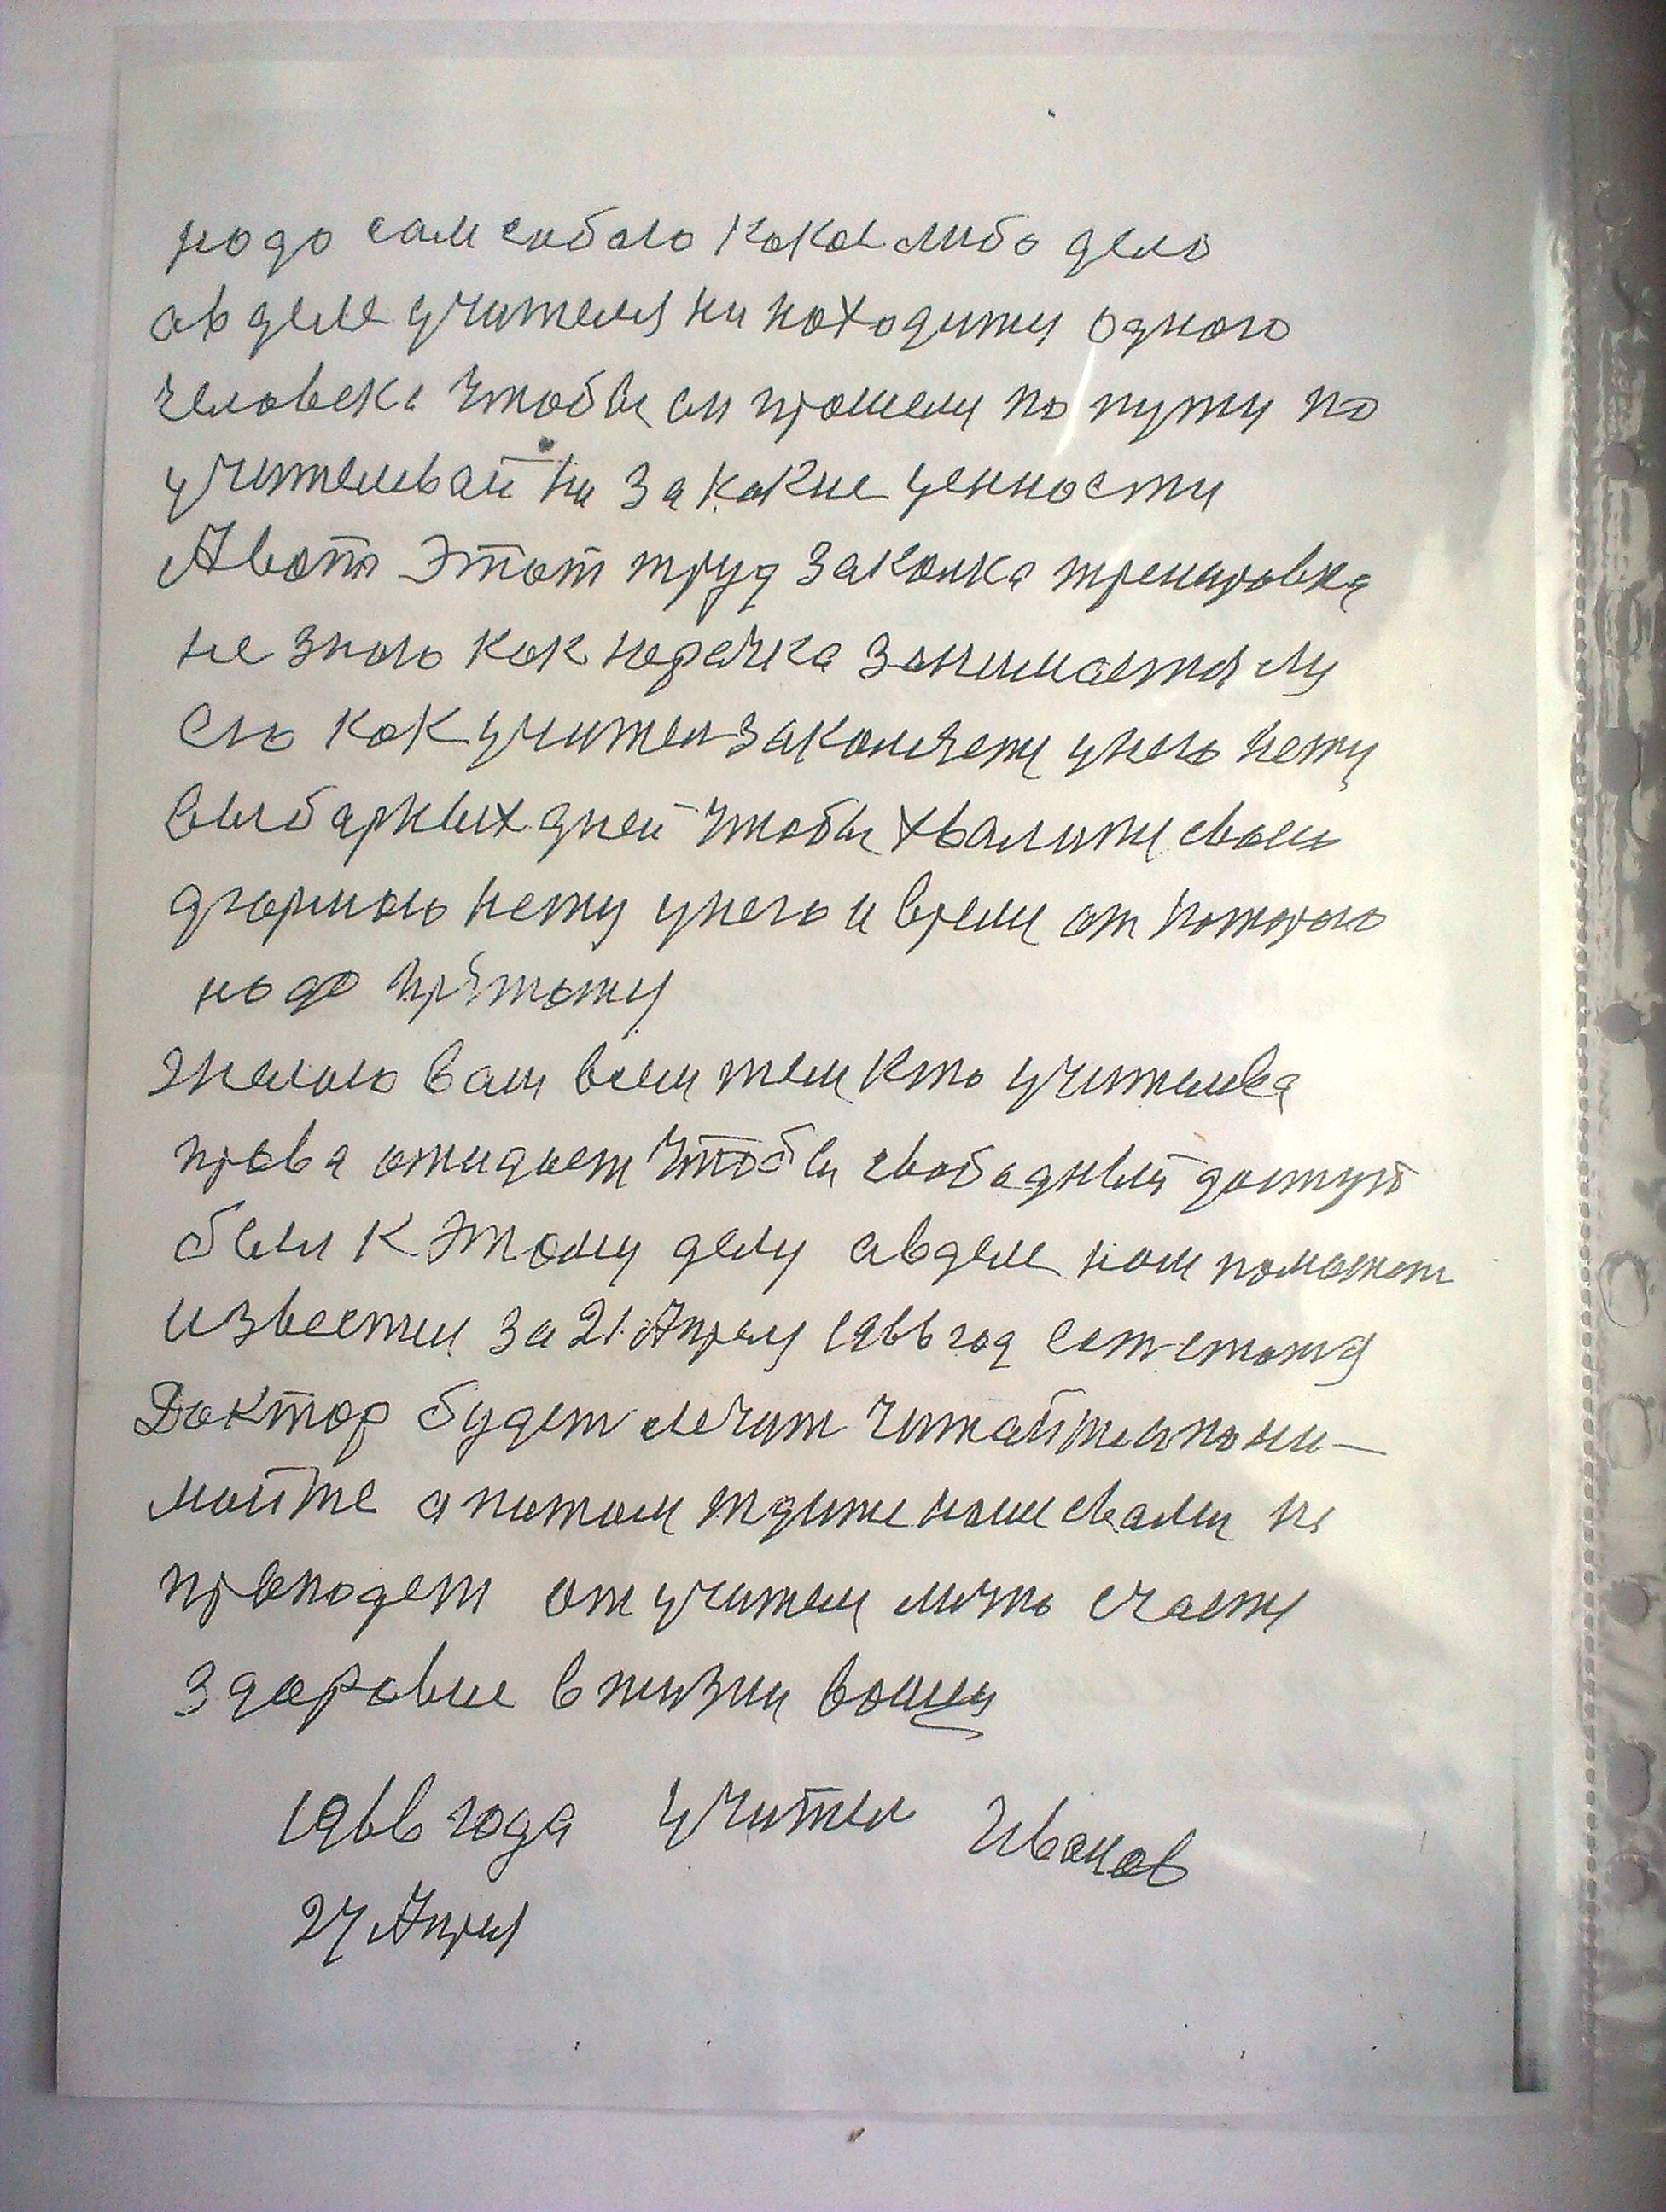 надо сам сабою какое либо дело
а в деле учителя ни находити одного
человека чтобы он прошели по пути по
учителивай ни за какие ценности
А вот этот труд закалка тренировка
не знаю как парачка занимается лу
ею как учител закончети у него нету
выбарных дней чтобы хвалити свою
дгармою нету у него и время от которого
надо
желаю вам всем тем кто учителева
права ожидает чтобы свабадный доступ
был к этому делу а в деле нам поможет
известия за 21 Апреля 1966 год
Доктор будет лечит читайте и пони-
майте а потом ждите наше с вами не
прападет от учителя лично счастя
здоровие в жизни вашей
1966 года учител Иванов
27 Апреля